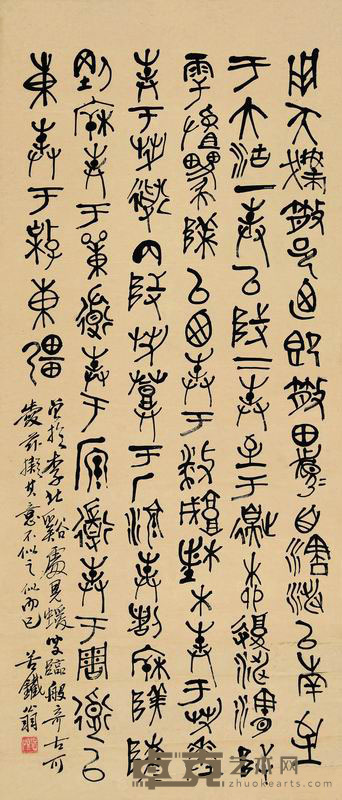 用夨撲散邑乃即散用田眉自瀗涉以南至
于大沽一封以陟二封至于邊柳復涉瀗陟
雩𨻐以西封于敝城楮木封于芻逨
封于芻道內陟芻登于厂湶封剖𨻐陵
剛封于單道封于原道封于周道以
東封于東疆
曾於李北谿處見蝯叟臨般奇古可
愛茲擬其意不似之似而已 苦鐵翁
卓克艺术网
zhuokearts.com